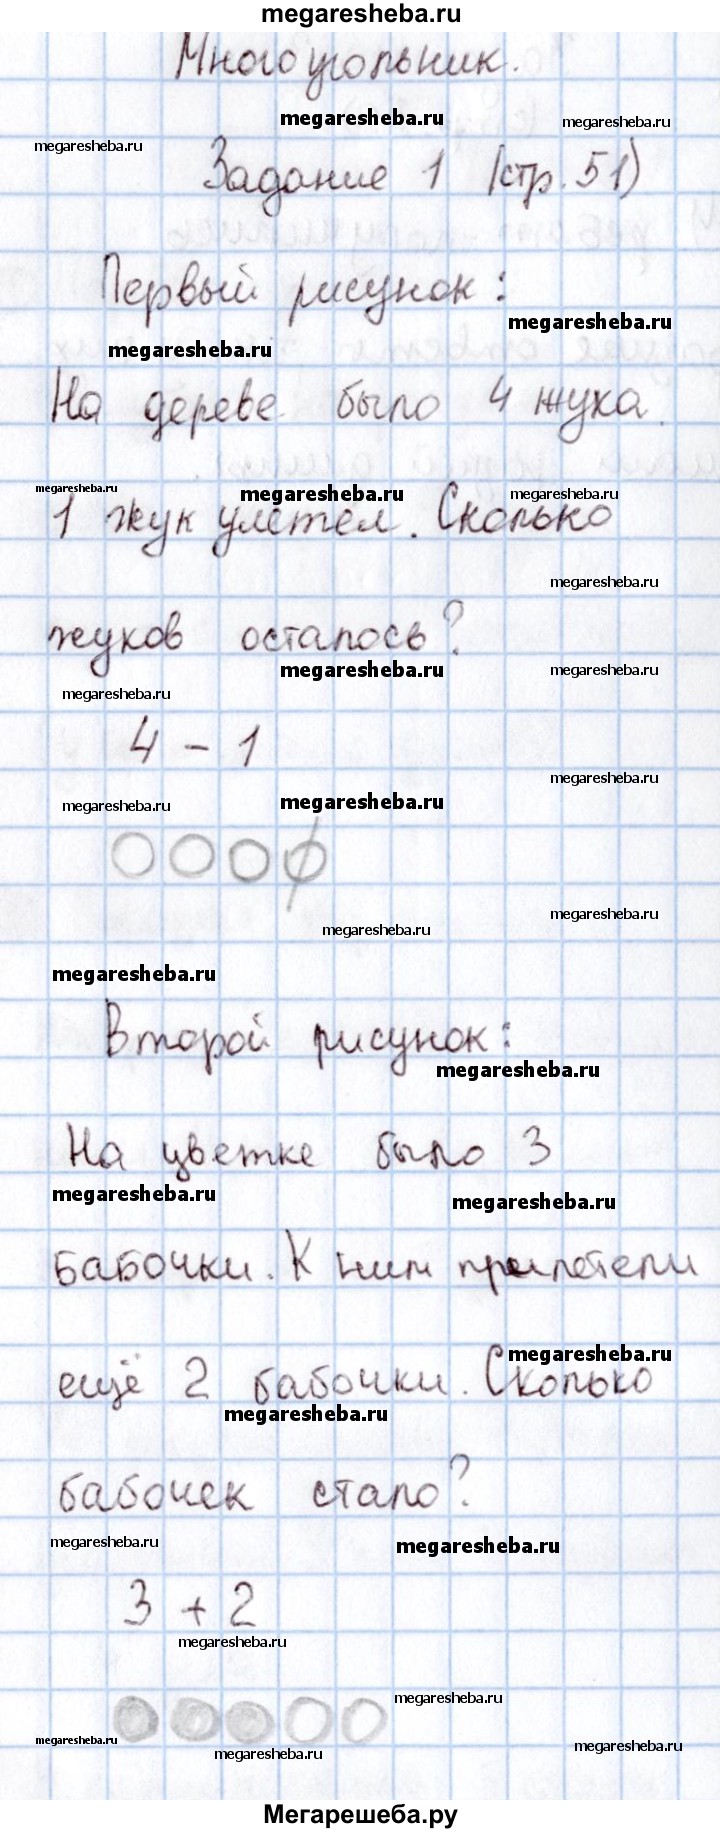 megaresheba.ru
Многоугольник.
megaresheba.ru
megaresheba.ru
megaresheba.ru
Задание 1 (стр. 51)
Первый рисунок:
megaresheba.ru
megaresheba.ru
На дереве было 4 жука.
megaresheba.ru
megaresheba.ru
megaresheba.ru
1 жук улетел. Сколько
megaresheba.ru
жуков осталось?
megaresheba.ru
megaresheba.ru
megaresheba.ru
4 - 1
megaresheba.ru
megaresheba.ru
megaresheba.ru
megaresheba.ru
megaresheba.ru
megaresheba.ru
Второй рисунок:
megaresheba.ru
На цветке было 3
megaresheba.ru
megaresheba.ru
бабочки. К ним прилетели
megaresheba.ru
ещё 2 бабочки. Сколько
megaresheba.ru
бабочек стало?
megaresheba.ru
megaresheba.ru
3 + 2
megaresheba.ru
megaresheba.ru
megaresheba.ru
megaresheba.ru
megaresheba.ru
Мегарешеба.ру